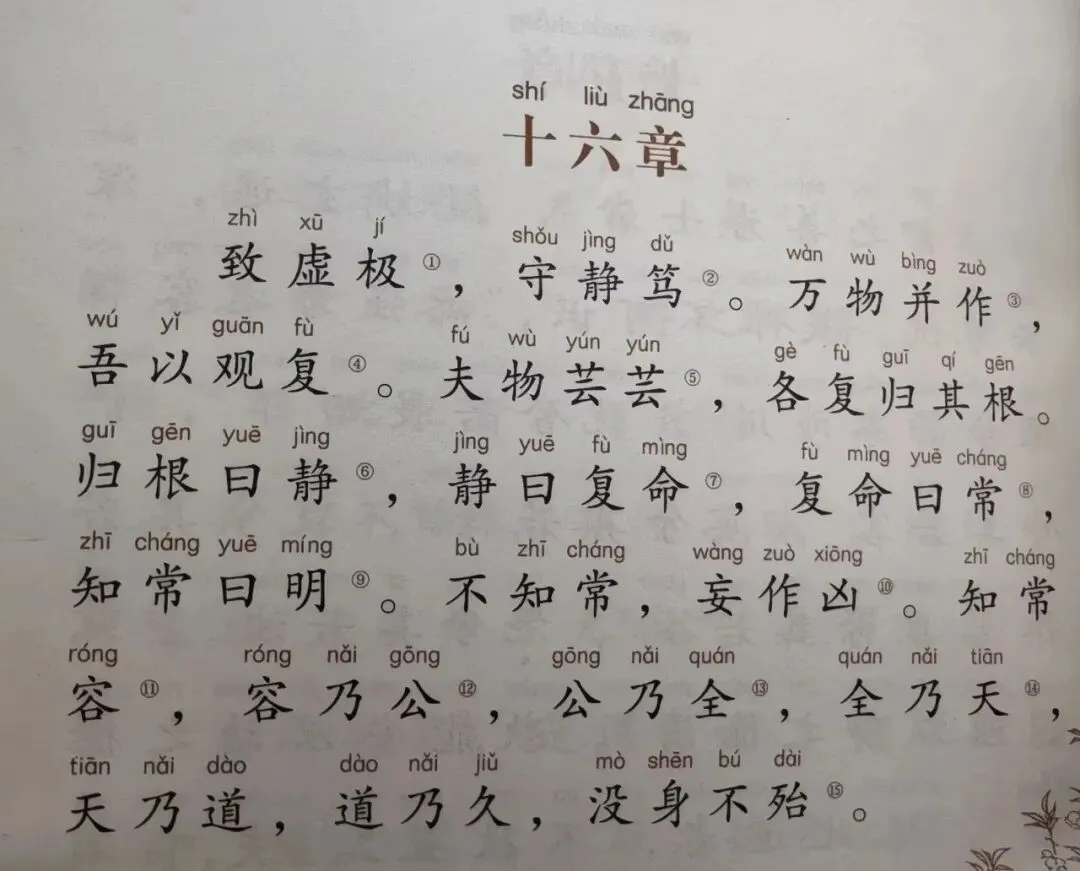 shí liù zhāng
十六章
zhì xū jí shǒu jìng dǔ wàn wù bìng zuò
致虚极①，守静笃②。万物并作③，
wú yǐ guān fù fú wù yún yún gè fù guī qí gēn
吾以观复④。夫物芸芸⑤，各复归其根。
guī gēn yuē jìng jìng yuē fù mìng fù mìng yuē cháng
归根曰静⑥，静曰复命⑦，复命曰常⑧，
zhī cháng yuē míng bù zhī cháng wàng zuò xiōng zhī cháng
知常曰明⑨。不知常，妄作凶⑩。知常
róng róng nǎi gōng gōng nǎi quán quán nǎi tiān
容⑪，容乃公⑫，公乃全⑬，全乃天⑭，
tiān nǎi dào dào nǎi jiǔ mò shēn bú dài
天乃道，道乃久，没身不殆⑮。